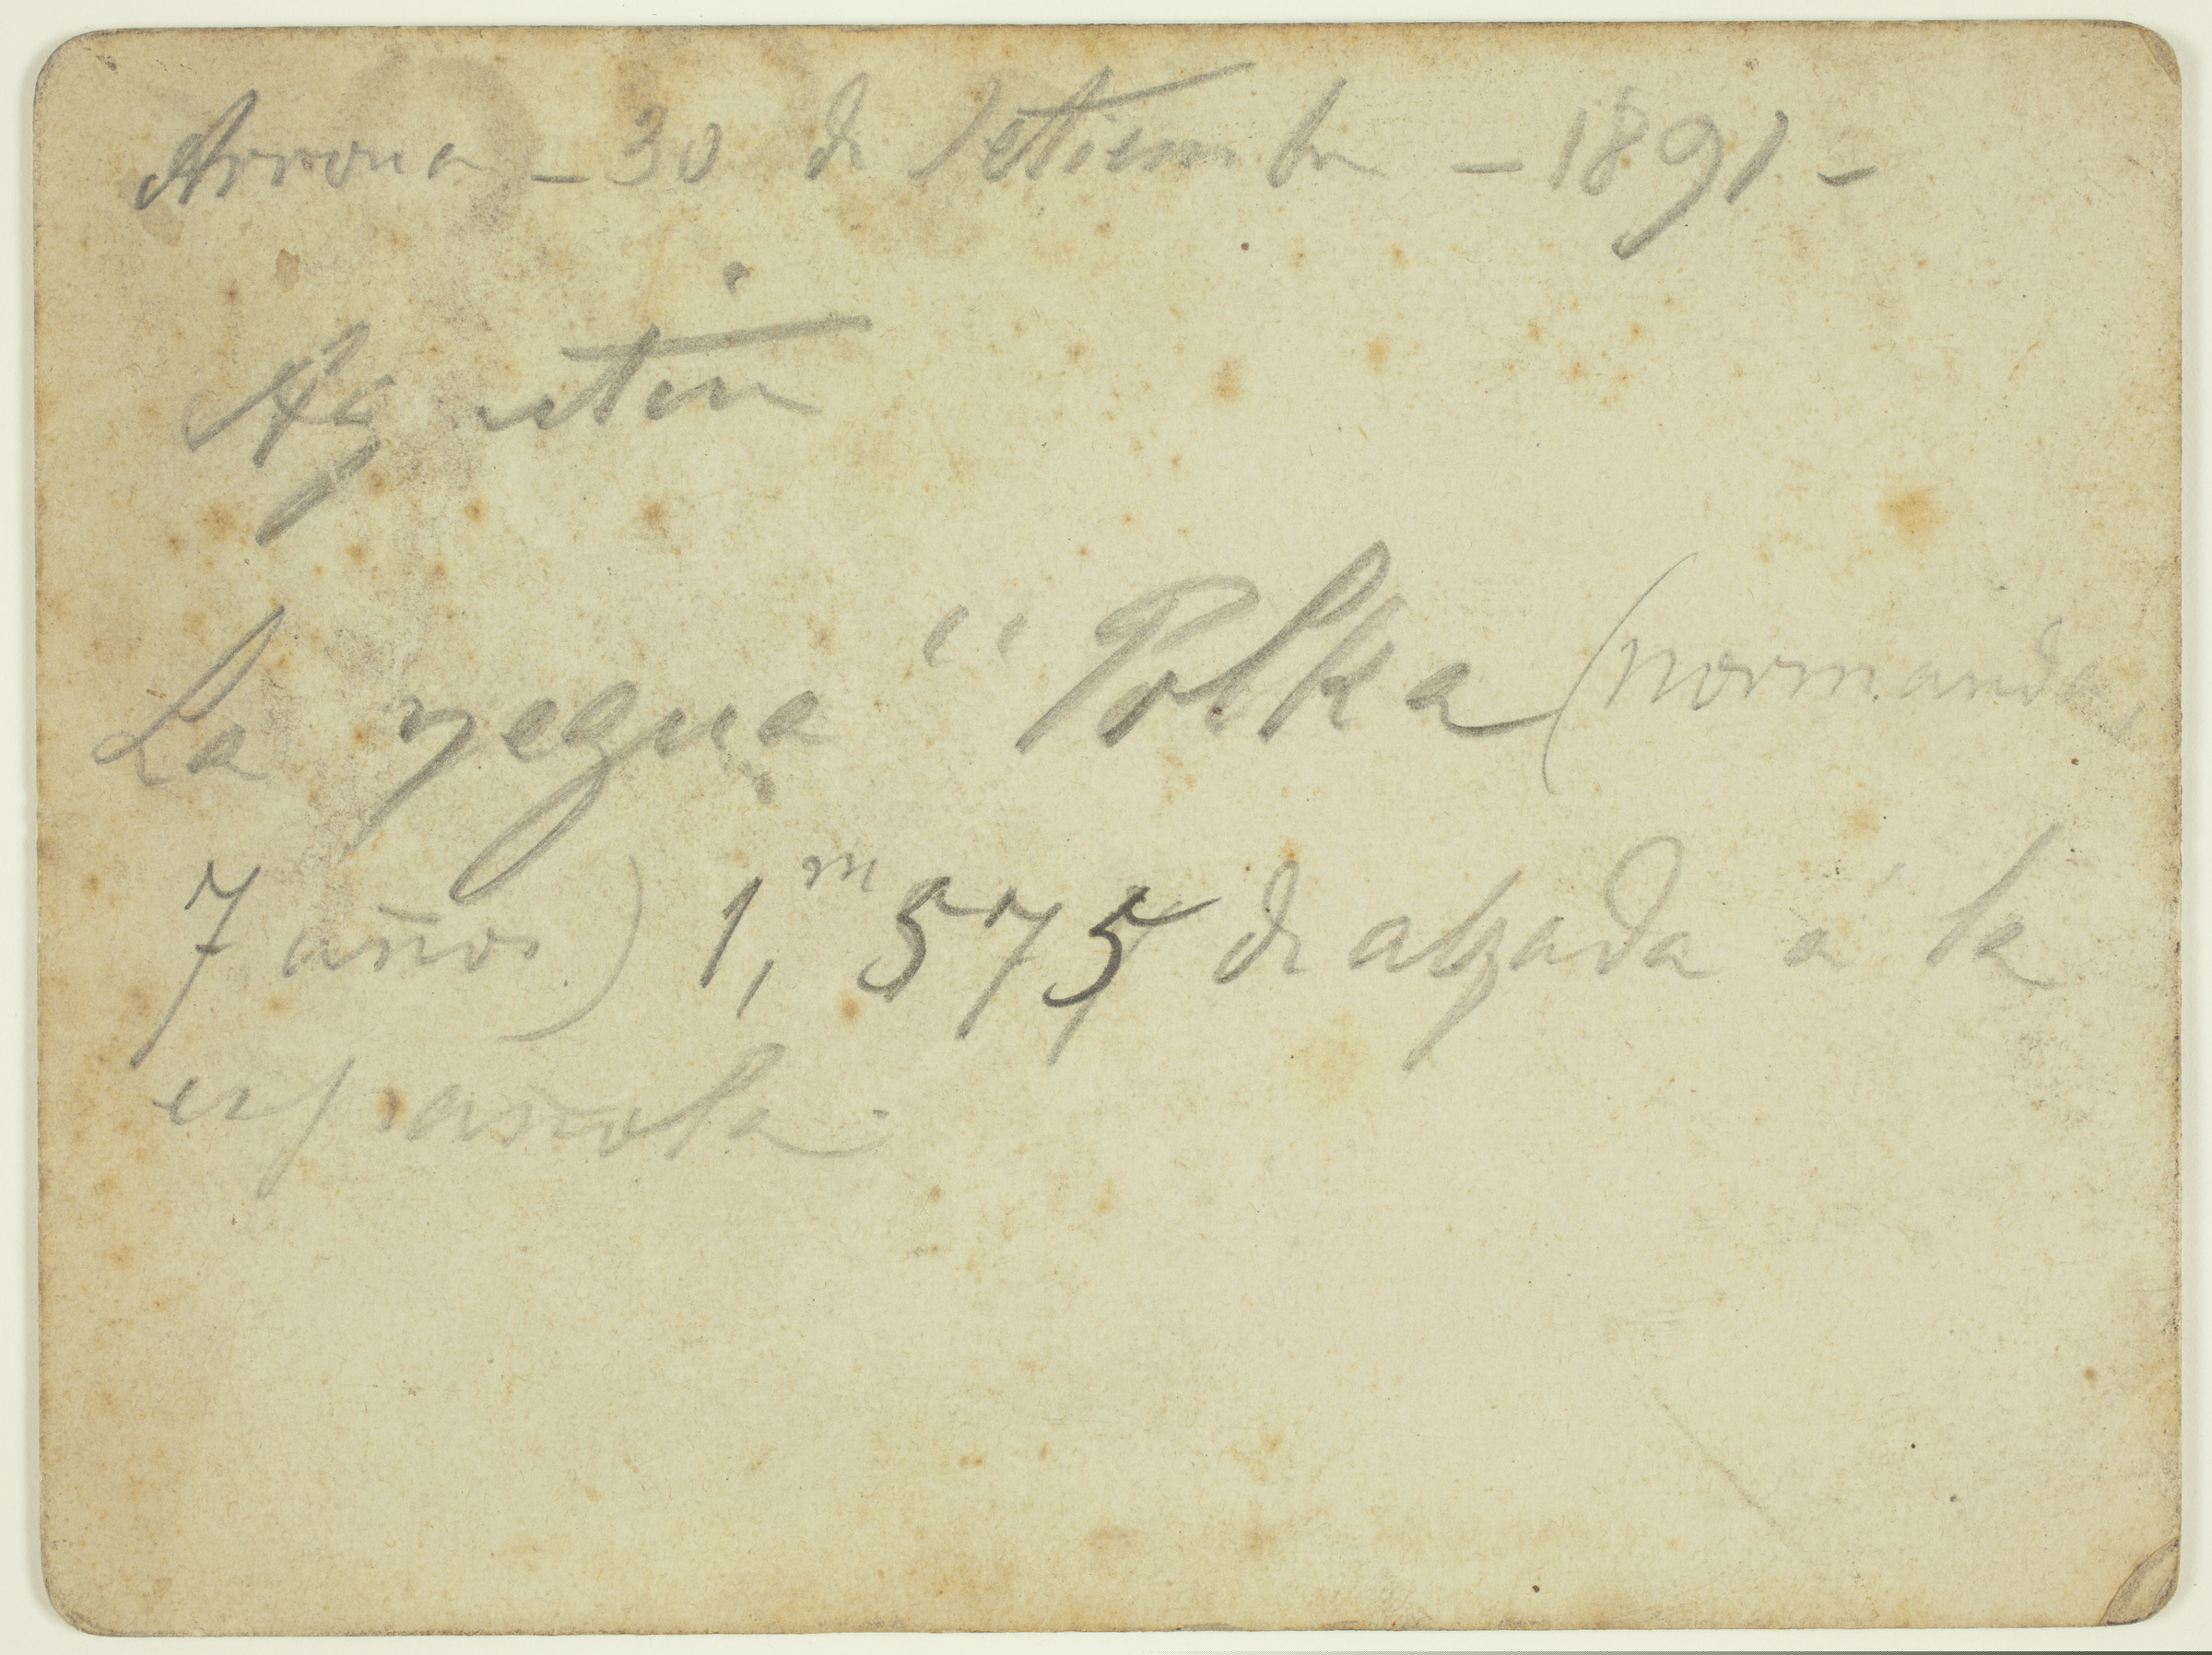 Arrona - 30 de Setiembre - 1891 -
Agustin
La yegua " Polka (normanda,
7 años) 1,m 575 de alzada á la
española.